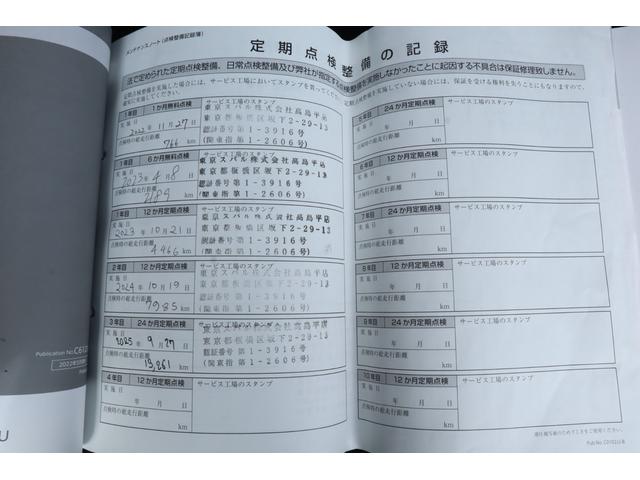 メンテナンスノート(点検整備記録簿)
定期点検整備の記録
法で定められた定期点検整備、日常点検整備及び弊社が指定する点検整備を実施しなかったことに起因する不具合は保証修理致しません。
定期点検整備を実施した場合には、サービス工場においてスタンプを
確実に実施してください。
定期点検整備を実施していない場合には、保証を受ける権利を失うことにもなりますので、
1年目 1か月無料点検
サービス工場のスタンプ
実施日
2022年11月27日
点検時の総走行距離
766 km
東京スバル株式会社高島平店
東京都板橋区坂下2-29-13
認証番号第1-3916号
(関東指第1-2606号)
1年目 6か月無料点検
サービス工場のスタンプ
実施日
2023年4月8日
点検時の総走行距離
2184 km
東京スバル株式会社高島平店
東京都板橋区坂下2-29-13
認証番号第1-3916号
(関東指第1-2606号)
1年目 12か月定期点検
サービス工場のスタンプ
実施日
2023年10月21日
点検時の総走行距離
4466 km
東京スバル株式会社高島平店
東京都板橋区坂下2-29-13
認証番号第1-3916号
(関東指第1-2606号)
2年目 12か月定期点検
サービス工場のスタンプ
実施日
2024年10月19日
点検時の総走行距離
7985 km
東京スバル株式会社高島平店
東京都板橋区坂下2-29-13
認証番号第1-3916号
(関東指第1-2606号)
3年目 24か月定期点検
サービス工場のスタンプ
実施日
2025年9月27日
点検時の総走行距離
13,261 km
東京スバル株式会社高島平店
東京都板橋区坂下2-29-13
認証番号第1-3916号
(関東指第1-2606号)
4年目 12か月定期点検
サービス工場のスタンプ
実施日
年 月 日
点検時の総走行距離
km
5年目 24か月定期点検
サービス工場のスタンプ
実施日
年 月 日
点検時の総走行距離
km
6年目 12か月定期点検
サービス工場のスタンプ
実施日
年 月 日
点検時の総走行距離
km
7年目 24か月定期点検
サービス工場のスタンプ
実施日
年 月 日
点検時の総走行距離
km
8年目 12か月定期点検
サービス工場のスタンプ
実施日
年 月 日
点検時の総走行距離
km
9年目 24か月定期点検
サービス工場のスタンプ
実施日
年 月 日
点検時の総走行距離
km
10年目 12か月定期点検
サービス工場のスタンプ
実施日
年 月 日
点検時の総走行距離
km
Publication No.
U